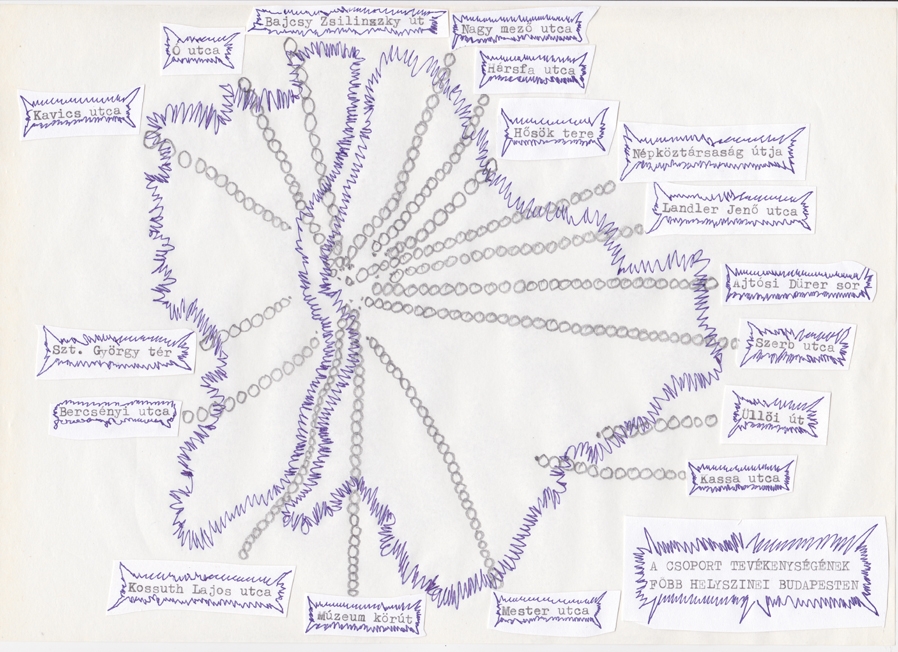 Bajcsy Zsilinszky út
Nagy mező utca
Ó utca
Hársfa utca
Kavics utca
Hősök tere
Népköztársaság útja
Landler Jenő utca
Ajtósi Dürer sor
Szerb utca
Szt. György tér
Bercsényi utca
Üllői út
Kassa utca
A CSOPORT TEVÉKENYSÉGÉNEK
FŐBB HELYSZINEI BUDAPESTEN
Kossuth Lajos utca
Múzeum körút
Mester utca